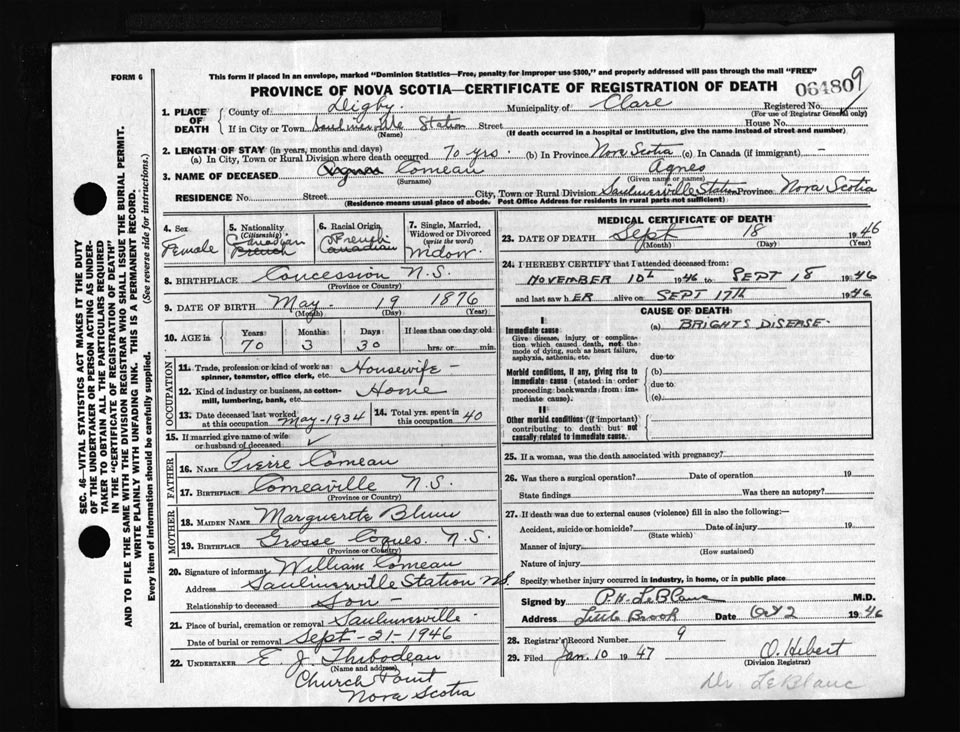 FORM 6
This form if placed in an envelope, marked "Dominion Statistics—Free, penalty for improper use $300," and properly addressed will pass through the mail "FREE"
PROVINCE OF NOVA SCOTIA—CERTIFICATE OF REGISTRATION OF DEATH
064809
1. PLACE OF DEATH
County of Digby Municipality of Clare Registered No.
(For use of Registrar General only)
If in City or Town Saulnierville Station Street House No.
(Name) (If death occurred in a hospital or institution, give the name instead of street and number)
2. LENGTH OF STAY (in years, months and days)
(a) In City, Town or Rural Division where death occurred 70 yrs. (b) In Province Nova Scotia (c) In Canada (if immigrant) —
3. NAME OF DECEASED Agnes Comeau Agnes
(Surname) (Given name or names)
RESIDENCE No. Street City, Town or Rural Division Saulnierville Station Province Nova Scotia
(Residence means usual place of abode. Post Office Address for residents in rural parts not sufficient)
4. Sex
Female
5. Nationality
(Citizenship)
Canadian
French
6. Racial Origin
French
Canadian
7. Single, Married, Widowed or Divorced
(write the word)
Widow
8. BIRTHPLACE Concession N.S.
(Province or Country)
9. DATE OF BIRTH May 19 1876
(Month) (Day) (Year)
10. AGE in Years Months Days If less than one day old
70 3 30 hrs. or min.
OCCUPATION
11. Trade, profession or kind of work as spinner, teamster, office clerk, etc. Housewife -
12. Kind of industry or business, as cotton-mill, lumbering, bank, etc. Home
13. Date deceased last worked at this occupation May - 1934
14. Total yrs. spent in this occupation 40
15. If married give name of wife or husband of deceased ✓
FATHER
16. NAME Pierre Comeau
17. BIRTHPLACE Comeauville N.S.
(Province or Country)
MOTHER
18. MAIDEN NAME Marguerite
19. BIRTHPLACE Grosse Coques. N.S.
(Province or Country)
20. Signature of informant William Comeau
Address Saulnierville Station N.S.
Relationship to deceased Son -
21. Place of burial, cremation or removal Saulnierville -
Date of burial or removal Sept - 21 - 1946
22. UNDERTAKER E. J. Thibodeau
(Name and address)
Church Point
Nova Scotia
MEDICAL CERTIFICATE OF DEATH
23. DATE OF DEATH Sept 18 1946
(Month) (Day) (Year)
24. I HEREBY CERTIFY that I attended deceased from:
NOVEMBER 10th 1946 to SEPT 18 1946
and last saw h ER alive on SEPT 17TH 1946
CAUSE OF DEATH
I
Immediate cause
Give disease, injury or complication which caused death, not the mode of dying, such as heart failure, asphyxia, asthenia, etc.
(a) BRIGHTS DISEASE.
due to
Morbid conditions, if any, giving rise to immediate cause (stated in order proceeding backwards from immediate cause).
(b)
due to
(c)
II
Other morbid conditions (if important) contributing to death but not causally related to immediate cause.
25. If a woman, was the death associated with pregnancy?
26. Was there a surgical operation? Date of operation 19
State findings Was there an autopsy?
27. If death was due to external causes (violence) fill in also the following:—
Accident, suicide or homicide? Date of injury 19
(State which)
Manner of injury
(How sustained)
Nature of injury
Specify whether injury occurred in industry, in home, or in public place
Signed by P.H. LeBlanc M.D.
Address Little Brook Date Oct 2 1946
28. Registrar's Record Number 9
29. Filed Jan. 10 1947 O. Hebert
(Division Registrar)
Dr LeBlanc
SEC. 46—VITAL STATISTICS ACT MAKES IT THE DUTY
OF THE UNDERTAKER OR PERSON ACTING AS UNDER-
TAKER TO OBTAIN ALL THE PARTICULARS REQUIRED
IN THE "CERTIFICATE OF REGISTRATION OF DEATH"
AND TO FILE THE SAME WITH THE DIVISION REGISTRAR WHO SHALL ISSUE THE BURIAL PERMIT.
WRITE PLAINLY WITH UNFADING INK. THIS IS A PERMANENT RECORD.
Every item of information should be carefully supplied. (See reverse side for instructions.)